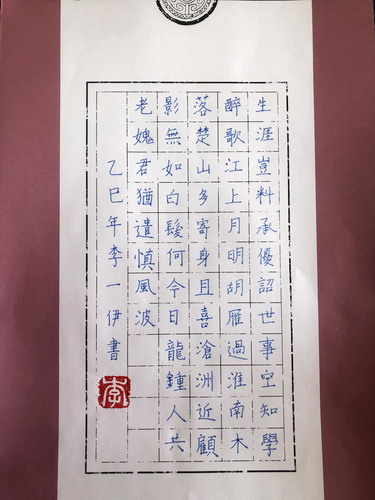 生涯豈料承優詔世事空知學
醉歌江上月明胡雁過淮南木
落楚山多寄身且喜滄洲近顧
影無如白髮何今日龍鍾人共
老媿君猶遣慎風波
乙巳年李一伊書
李